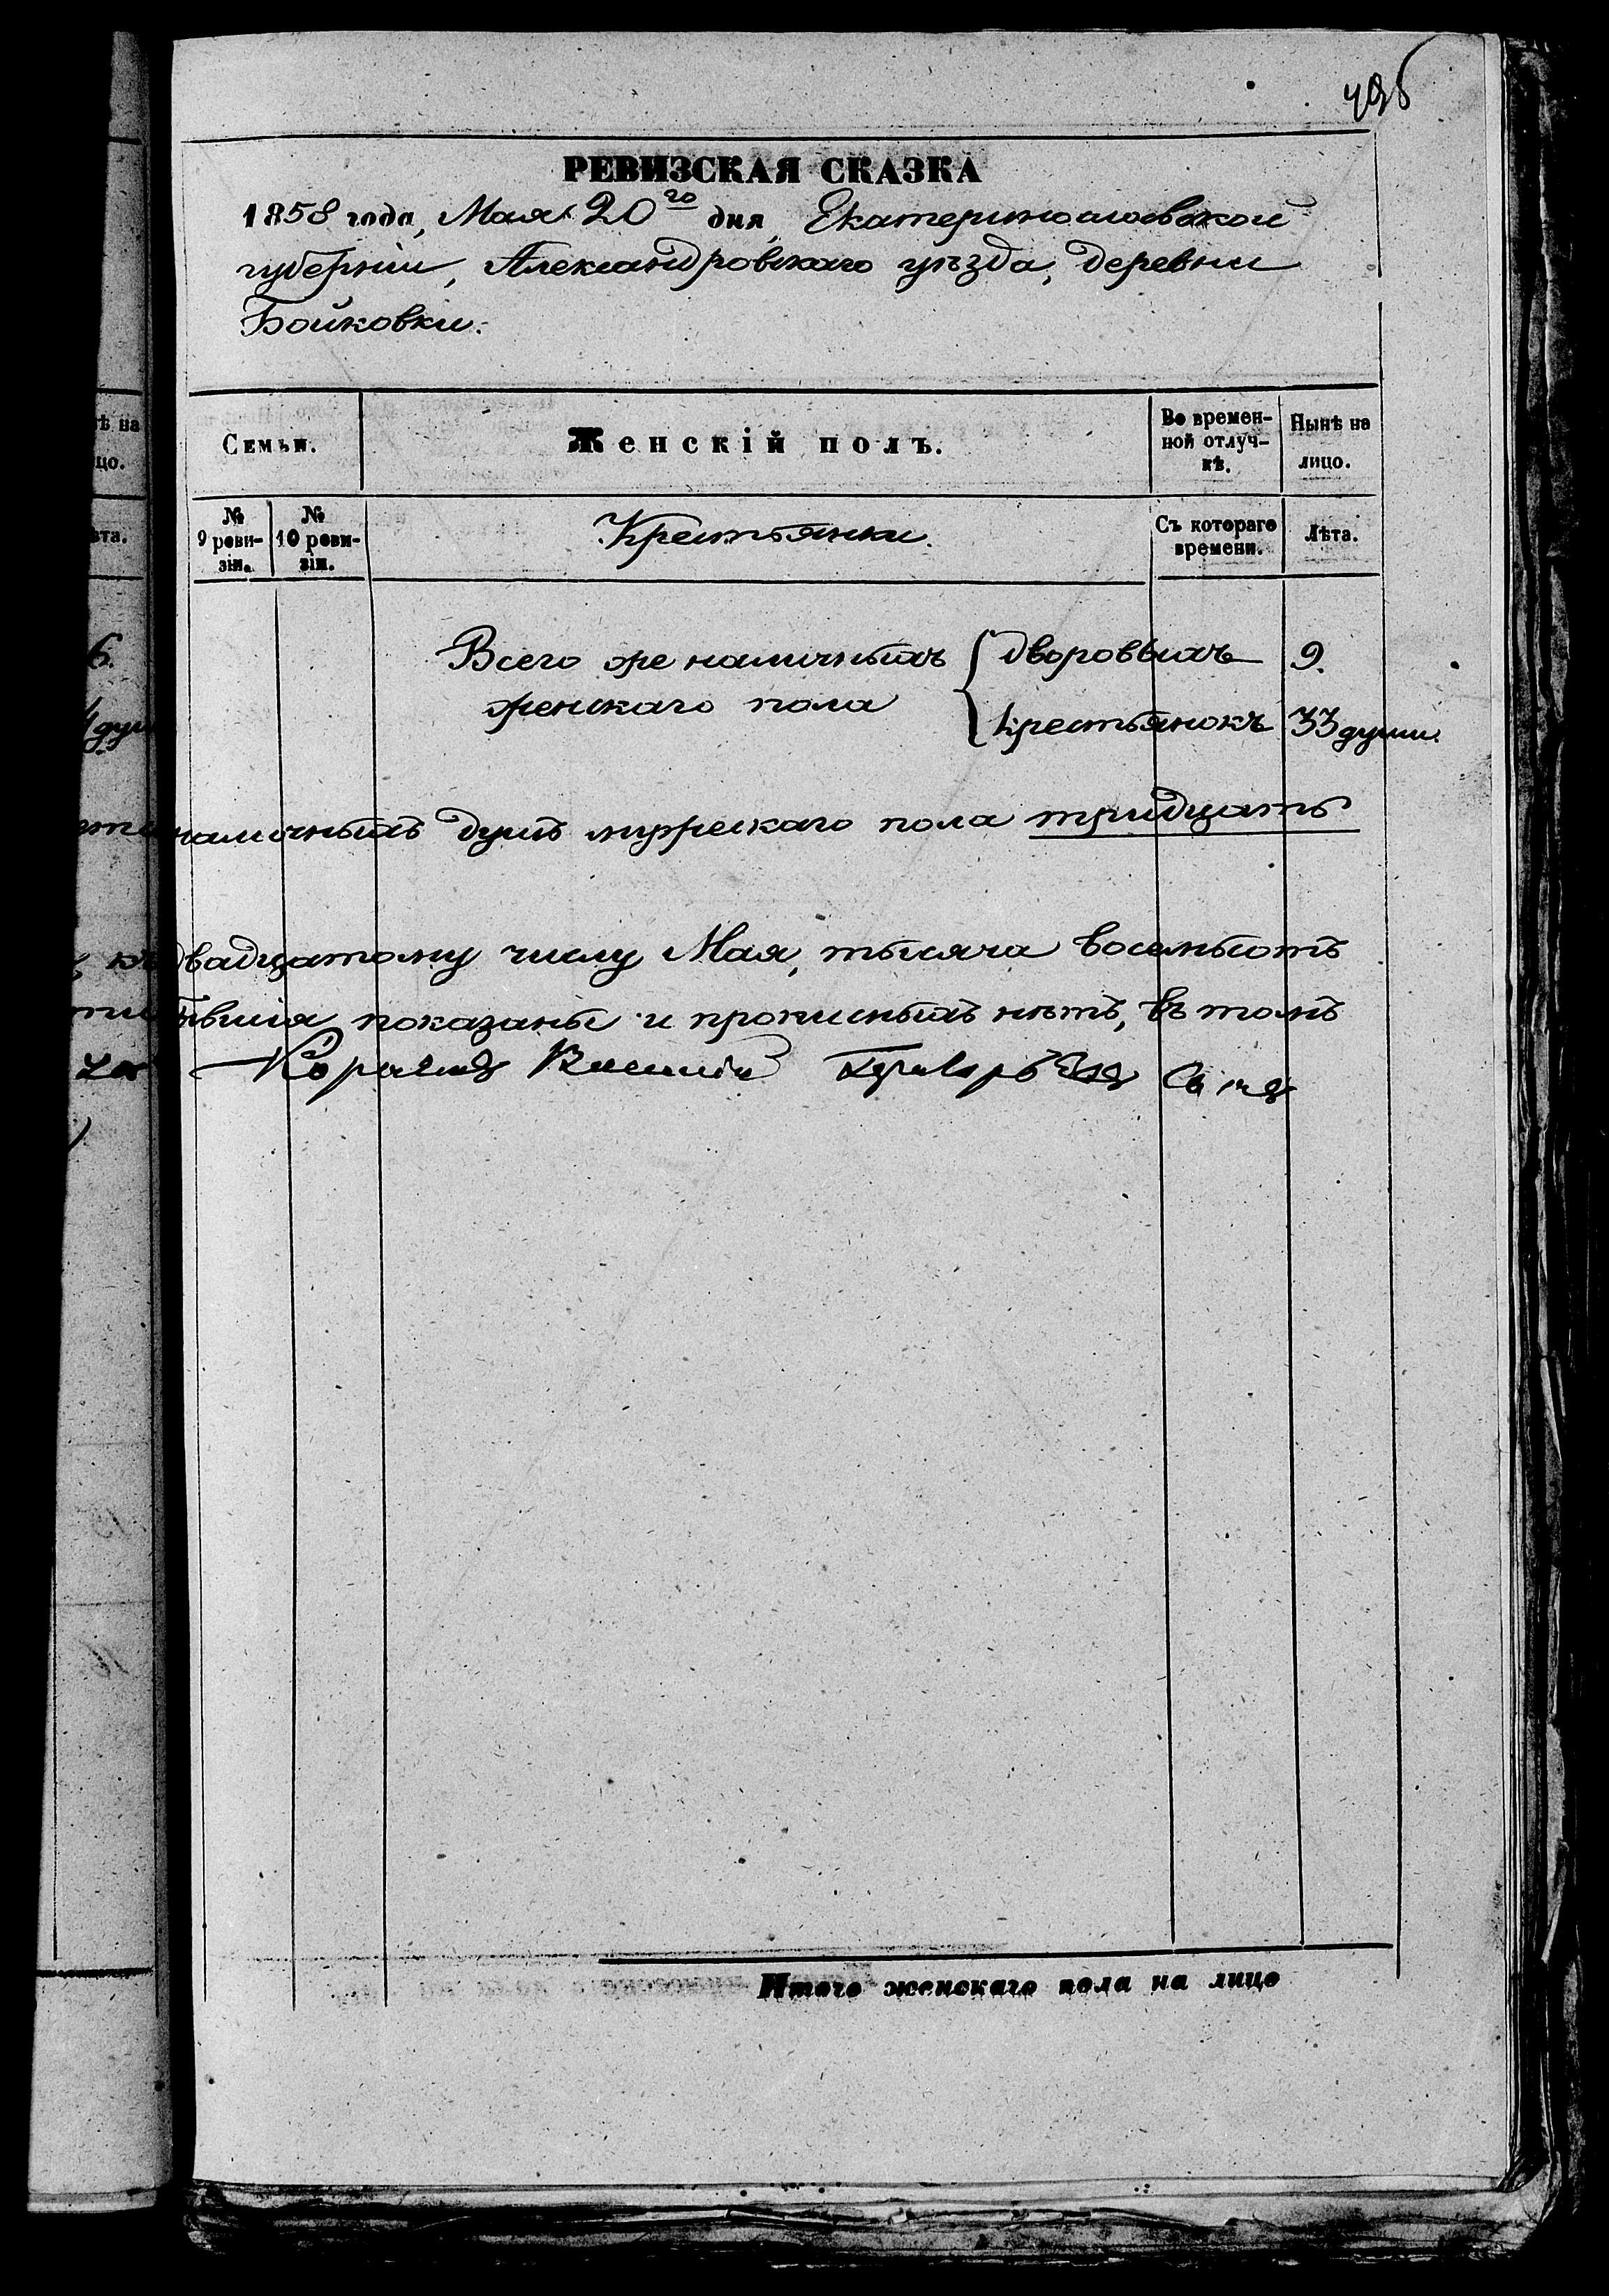 РЕВИЗСКАЯ СКАЗКА
1858 года, Мая 20го дня, Екатеринославской
губерніи, Александровскаго уѣзда, деревни
Бойковки.
Семьи.
Женскій полъ.
Во времен-
ной отлуч-
кѣ.
Нынѣ на
лицо.
№
9 реви-
зіи.
№
10 реви-
зіи.
Крестьянки.
Съ котораго
времени.
Лѣта.
Всего же наличныхъ { дворовыхъ 9.
женскаго пола { крестьянокъ 33 души.
наличныхъ душъ мужескаго пола тридцать
двадцатому числу Мая, тысяча восемьсотъ
показаны и прописныхъ нѣтъ, въ томъ
Итого женскаго пола на лицо